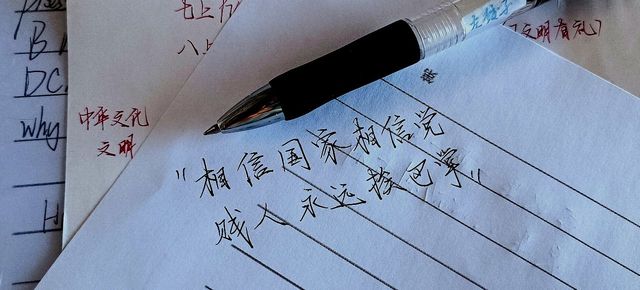 B
DC
Why
H
七上
八上
中华文化
文明
文明有礼
"相信国家相信党
贱人永远挨巴掌"